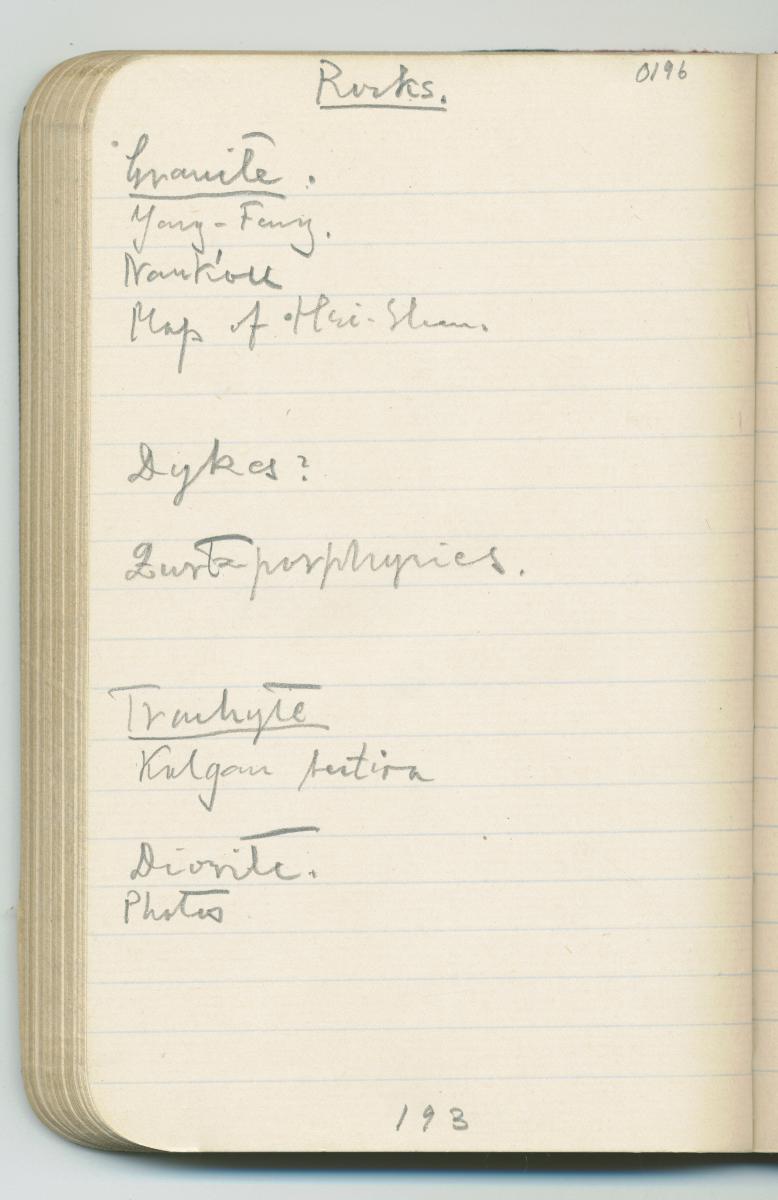 Rocks.
0196
Granite.
Yang-Fang.
Nank'ou
Map of Hsi-Shan.
Dykes?
Quartzporphyries.
Trachyte
Kalgan section
Diorite.
Photos
193